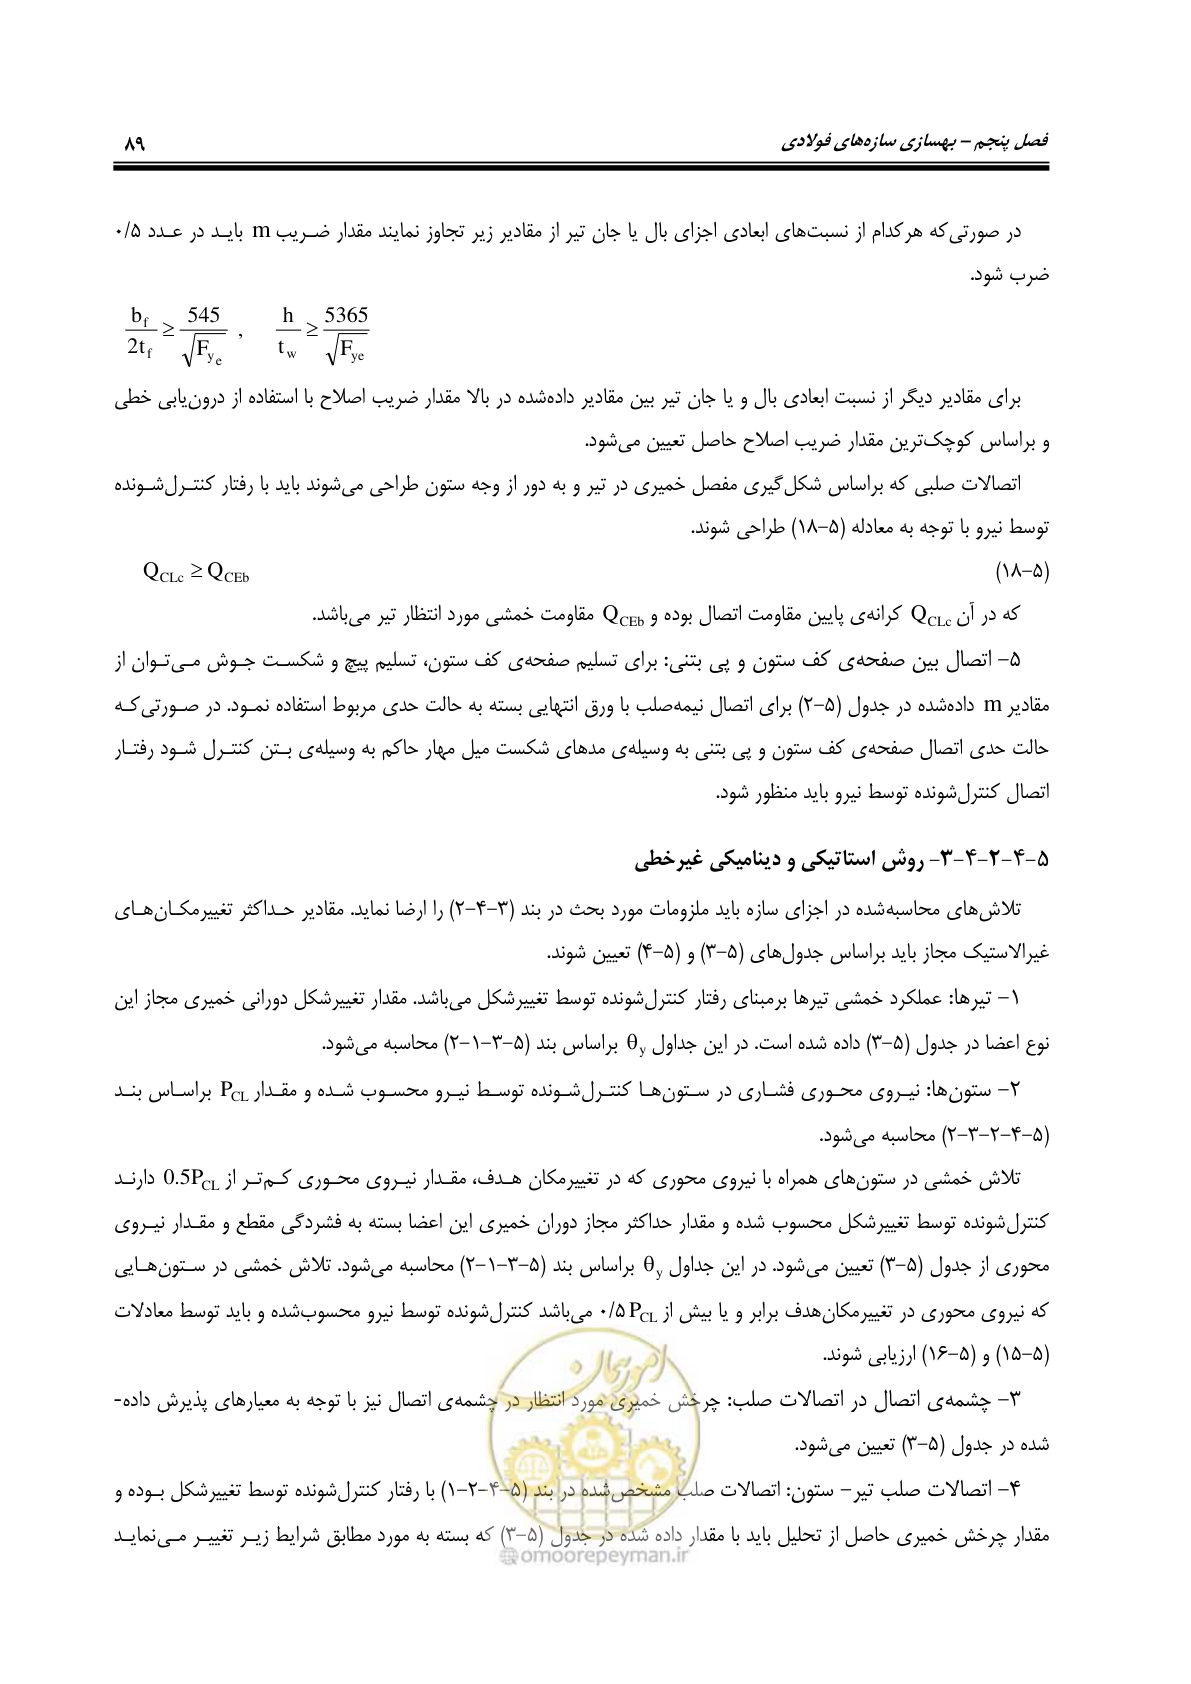 فصل پنجم – بهسازی سازه‌های فولادی ۸۹
در صورتی‌که هرکدام از نسبت‌های ابعادی اجزای بال یا جان تیر از مقادیر زیر تجاوز نمایند مقدار ضریب m باید در عدد ۰/۵
ضرب شود.
b_f/2t_f ≥ 545/√F_ye , h/t_w ≥ 5365/√F_ye
برای مقادیر دیگر از نسبت ابعادی بال و یا جان تیر بین مقادیر داده‌شده در بالا مقدار ضریب اصلاح با استفاده از درون‌یابی خطی
و براساس کوچک‌ترین مقدار ضریب اصلاح حاصل تعیین می‌شود.
اتصالات صلبی که براساس شکل‌گیری مفصل خمیری در تیر و به دور از وجه ستون طراحی می‌شوند باید با رفتار کنترل‌شونده
توسط نیرو با توجه به معادله (۵-۱۸) طراحی شوند.
(۵-۱۸) Q_CLc ≥ Q_CEb
که در آن Q_CLc کرانه‌ی پایین مقاومت اتصال بوده و Q_CEb مقاومت خمشی مورد انتظار تیر می‌باشد.
۵- اتصال بین صفحه‌ی کف ستون و پی بتنی: برای تسلیم صفحه‌ی کف ستون، تسلیم پیچ و شکست جوش می‌توان از
مقادیر m داده‌شده در جدول (۵-۲) برای اتصال نیمه‌صلب با ورق انتهایی بسته به حالت حدی مربوط استفاده نمود. در صورتی‌که
حالت حدی اتصال صفحه‌ی کف ستون و پی بتنی به وسیله‌ی مدهای شکست میل مهار حاکم به وسیله‌ی بتن کنترل شود رفتار
اتصال کنترل‌شونده توسط نیرو باید منظور شود.
۵-۴-۲-۴-۳- روش استاتیکی و دینامیکی غیرخطی
تلاش‌های محاسبه‌شده در اجزای سازه باید ملزومات مورد بحث در بند (۳-۴-۲) را ارضا نماید. مقادیر حداکثر تغییرمکان‌های
غیرالاستیک مجاز باید براساس جدول‌های (۵-۳) و (۵-۴) تعیین شوند.
۱- تیرها: عملکرد خمشی تیرها برمبنای رفتار کنترل‌شونده توسط تغییرشکل می‌باشد. مقدار تغییرشکل دورانی خمیری مجاز این
نوع اعضا در جدول (۵-۳) داده شده است. در این جداول θ_y براساس بند (۵-۳-۱-۲) محاسبه می‌شود.
۲- ستون‌ها: نیروی محوری فشاری در ستون‌ها کنترل‌شونده توسط نیرو محسوب شده و مقدار P_CL براساس بند
(۵-۴-۲-۳-۲) محاسبه می‌شود.
تلاش خمشی در ستون‌های همراه با نیروی محوری که در تغییرمکان هدف، مقدار نیروی محوری کم‌تر از 0.5P_CL دارند
کنترل‌شونده توسط تغییرشکل محسوب شده و مقدار حداکثر مجاز دوران خمیری این اعضا بسته به فشردگی مقطع و مقدار نیروی
محوری از جدول (۵-۳) تعیین می‌شود. در این جداول θ_y براساس بند (۵-۳-۱-۲) محاسبه می‌شود. تلاش خمشی در ستون‌هایی
که نیروی محوری در تغییرمکان‌هدف برابر و یا بیش از ۰/۵ P_CL می‌باشد کنترل‌شونده توسط نیرو محسوب‌شده و باید توسط معادلات
(۵-۱۵) و (۵-۱۶) ارزیابی شوند.
۳- چشمه‌ی اتصال در اتصالات صلب: چرخش خمیری مورد انتظار در چشمه‌ی اتصال نیز با توجه به معیارهای پذیرش داده-
شده در جدول (۵-۳) تعیین می‌شود.
۴- اتصالات صلب تیر- ستون: اتصالات صلب مشخص‌شده در بند (۵-۴-۲-۱) با رفتار کنترل‌شونده توسط تغییرشکل بوده و
مقدار چرخش خمیری حاصل از تحلیل باید با مقدار داده شده در جدول (۵-۳) که بسته به مورد مطابق شرایط زیر تغییر می‌نماید
امور پیمان
@omoorepeyman.ir